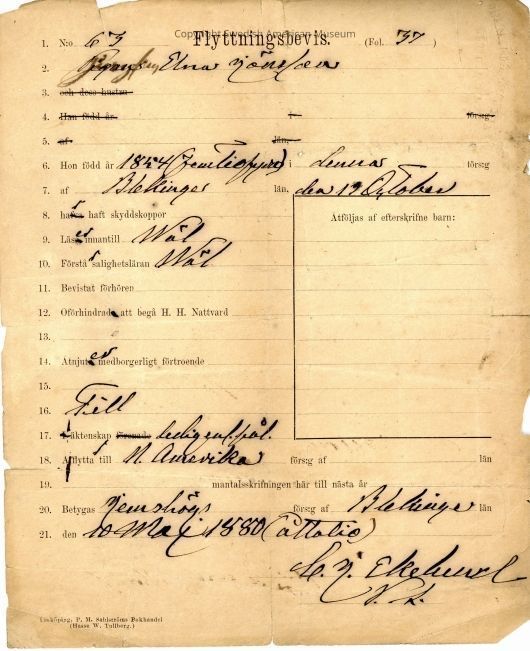 Copyright Swedish American Museum
Flyttningsbevis.
1. N:o 63 (Fol. 37)
2. Elna Jönsson
3. och dess hustru
4. Han född år i förs:g
5. af län,
6. Hon född år 1854 (femtiofyra) i denna förs:g
7. af Blekinge län. den 19 October
8. haft skyddskoppor
Åtföljas af efterskrifne barn:
9. Läser innantill Wäl
10. Förstår salighetsläran Wäl
11. Bevistat förhören
12. Oförhindrad att begå H. H. Nattvard
13.
14. Åtnjuter medborgerligt förtroende
15.
16. Till
17. äktenskap förenade ledig
18. flytta till N. Amerika förs:g af län
19. mantalsskrifningen här till nästa år
20. Betygas Jemshög förs:g af Blekinge län
21. den 10 Maj 1880 (åttatio)
Linköping, P. M. Sahlströms Bokhandel
(Hasse W. Tullberg.)